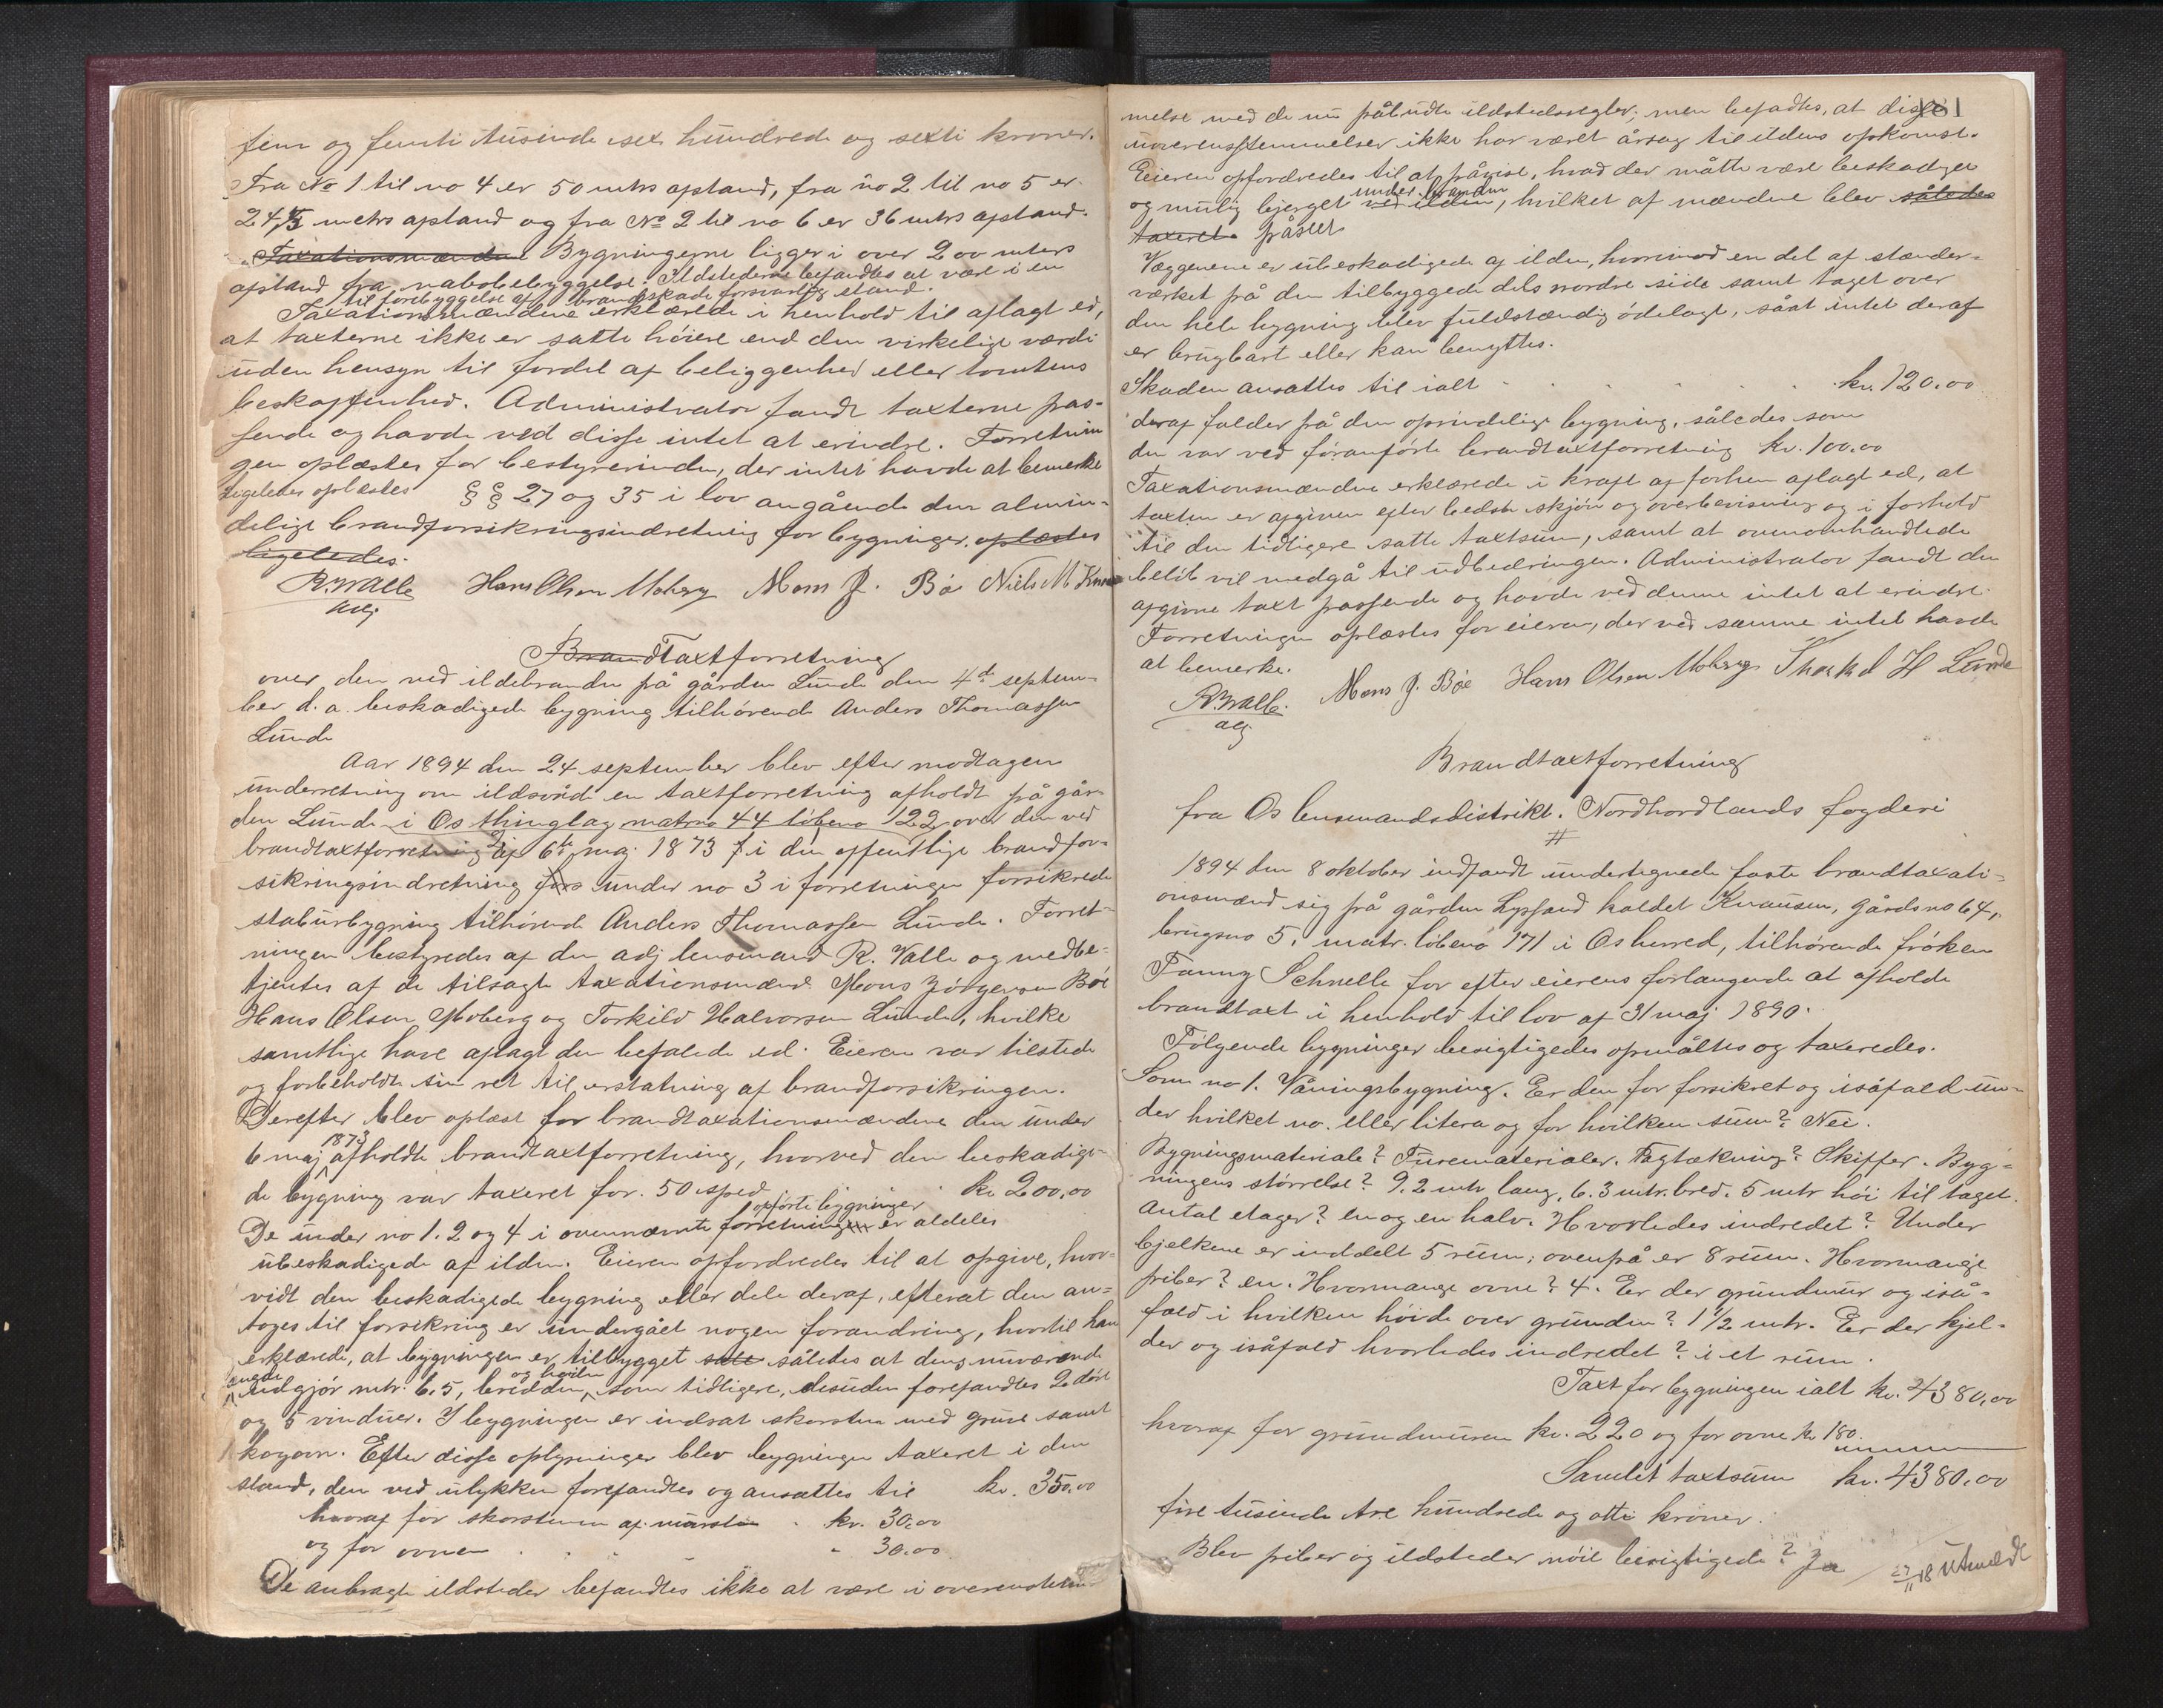 fem og femti tusinde sex hundrede og sexti kroner.
Fra No 1 til no 4 er 50 mtrs afstand, fra no 2 til no 5 er
24,5 mtrs afstand og fra No 2 til no 6 er 36 mtrs afstand.
Taxationsmændene Bygningerne ligger i over 200 mters
afstand fra nabobebyggelse. Ildstederne befandtes at være i en
til forebyggelse af brandskade forsvarlig stand.
Taxationsmændene erklærede i henhold til aflagt ed,
at taxterne ikke er satte høiere end den virkelige værdi
uden hensyn til fordel af beliggenhed eller tomtens
beskaffenhed. Administrator fandt taxterne pas-
sende og havde ved disse intet at erindre. Forretnin
gen oplæstes for bestyrerinden, der intet havde at bemerke
ligeledes oplæstes §§ 27 og 35 i lov angående den almin-
delige brandforsikringsindretning for bygninger. oplæstes
ligeledes.
R. Valle Hans Olsen Moberg Mons J. Bøe Niels M.
adj
Brandtaxtforretning
over den ved ildebranden på gården Lunde den 4de septem-
ber d. a. beskadigede bygning tilhørende Anders Thomassen
Lunde
Aar 1894 den 24 september blev efter modtagen
underretning om ildsvåde en taxtforretning afholdt på går-
den Lunde i Os thinglag matrno 44 løbeno 122 over den ved
brandtaxtforretning af 6te maj 1873 i den offentlige brandfor-
sikringsindretning fors under no 3 i forretningen forsikrede
stabursbygning tilhørende Anders Thomassen Lunde. Forret-
ningen bestyredes af den adj lensmand R. Valle og medbe-
tjentes af de tilsagte taxationsmænd Mons Jørgensen Bøe
Hans Olsen Moberg og Torkild Halvorsen Lunde, hvilke
samtlige have aflagt den befalede ed. Eieren var tilstede
og forbeholdt sin ret til erstatning af brandforsikringen.
Derefter blev oplæst for brandtaxationsmændene den under
6 maj 1873 afholdte brandtaxtforretning, hvorved den beskadige-
de bygning var taxeret for 50 sped. kr. 200,00
De under no 1. 2 og 4 i ovennævnte forretning opførte bygninger er aldeles
ubeskadigede af ilden. Eieren opfordredes til at opgive, hvor-
vidt den beskadigede bygning eller dele deraf, efterat den an-
toges til forsikring er undergået nogen forandring, hvortil han
erklærede, at bygningen er tilbygget således at dens nuværende
længde udgjør mtr. 6,5, bredden og høiden som tidligere, desuden forefandtes 2 døre
og 5 vinduer. I bygningen er indsat skorsten med grue samt
kogovn. Efter disse oplysninger blev bygningen taxeret i den
stand, den ved ulykken forefandtes og ansattes til kr. 350,00
hvoraf for skorstenen af mursten kr. 30,00
og for ovnen " 30,00
De anbragte ildsteder befandtes ikke at være i overenstem-
melse med de nu påbudte ildstedsregler, men befandtes, at disse
181
uoverensstemmelser ikke har været årsag til ildens opkomst.
Eieren opfordredes til at påvise, hvad der måtte være beskadiget
og mulig bjerget ved ilden under branden, hvilket af mændene blev således
taxeret påseet
Væggene er ubeskadigede af ilden, hvorimod en del af stænder-
værket på den tilbyggede dels nordre side samt taget over
den hele bygning blev fuldstændig ødelagt, såat intet deraf
er brugbart eller kan benyttes.
Skaden ansattes til ialt kr. 120,00
deraf falder på den oprindelige bygning, således som
den var ved føranførte brandtaxtforretning kr. 100,00
Taxationsmændene erklærede i kraft af forhen aflagt ed, at
taxten er afgiven efter bedste skjøn og overbevisning og i forhold
til den tidligere satte taxtsum, samt at ovenomhandlede
beløb vil medgå til udbedringen. Administrator fandt den
afgivne taxt passende og havde ved denne intet at erindre.
Forretningen oplæstes for eieren, der ved samme intet havde
at bemerke.
R. Valle. Mons J. Bøe Hans Olsen Moberg Thorkel H Lunde
adj
Brandtaxtforretning
fra Os lensmandsdistrikt. Nordhordlands fogderi
#
1894 den 8 oktober indfandt undertegnede faste brandtaxati-
onsmænd sig på gården Lysfand kaldet Knausen, gårdsno 64,
brugsno 5, matr. løbeno 171 i Os herred, tilhørende frøken
Fanny Schnelle for efter eierens forlangende at afholde
brandtaxt i henhold til lov af 31 maj 1890.
Følgende bygninger besigtigedes opmåltes og taxeredes.
Som no 1. Våningsbygning. Er den før forsikret og isåfald un-
der hvilket no. eller litera og for hvilken sum? Nei.
Bygningsmateriale? Furematerialer. Tagtækning? Skiffer. Byg-
ningens størrelse? 9.2 mtr lang, 6.3 mtr. bred. 5 mtr høi til taget.
Antal etager? en og en halv. Hvorledes indredet? Under
bjelkene er inddelt 5 rum; ovenpå er 8 rum. Hvormange
piber? en. Hvormange ovne? 4. Er der grundmur og iså-
fald i hvilken høide over grunden? 1 1/2 mtr. Er der kjel-
der og isåfald hvorledes indredet? i et rum.
Taxt for bygningen ialt kr. 4380,00
hvoraf for grundmuren kr. 220 og for ovne kr 180.
Samlet taxtsum kr. 4380,00
fire tusinde tre hundrede og otti kroner.
Blev piber og ildsteder nøie besigtigede? Ja
27/11 18 Utmeldt